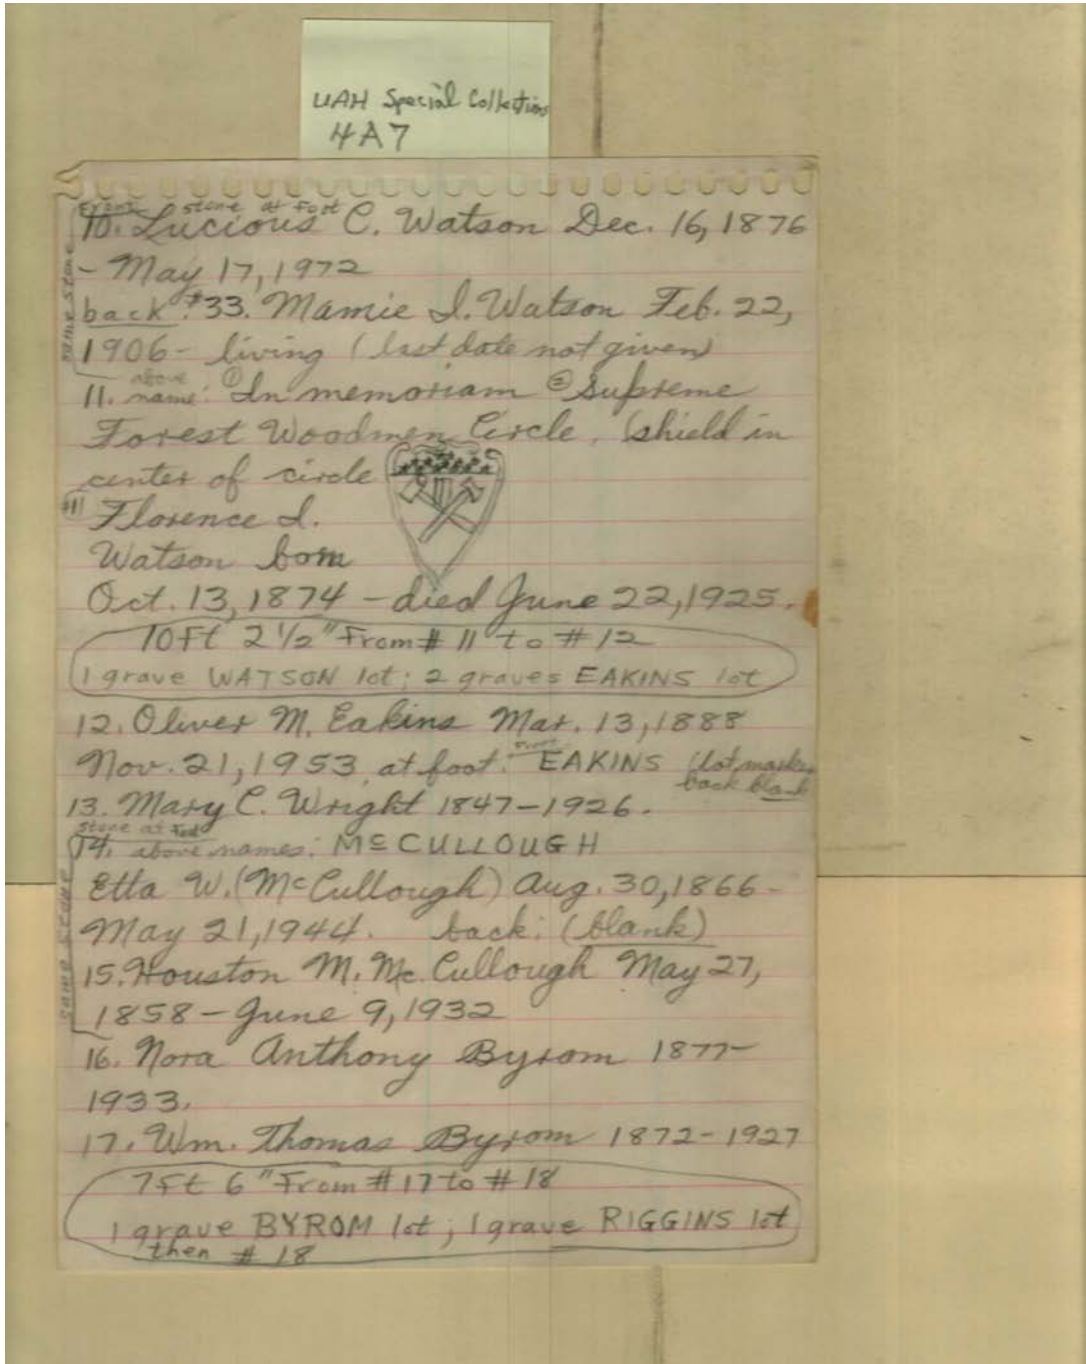 UAH Special Collections
4A7
front stone at foot
10. Lucious C. Watson Dec. 16, 1876
- May 17, 1972
same stone
back: #33. Mamie I. Watson Feb. 22,
1906 - living (last date not given)
11. above name: ① In memoriam ② Supreme
Forest Woodmen Circle. (shield in
center of circle
#11 Florence I.
Watson born
Oct. 13, 1874 - died June 22, 1925.
10Ft 2 1/2" From # 11 to # 12
1 grave WATSON lot; 2 graves EAKINS lot
12. Oliver M. Eakins Mar. 13, 1888
Nov. 21, 1953 at foot: front EAKINS (lot marker
back blank
13. Mary C. Wright 1847-1926.
stone at foot
14. above names: McCULLOUGH
Etta W. (McCullough) Aug. 30, 1866 -
May 21, 1944. back: (blank)
same stone
15. Houston M. Mc.Cullough May 27,
1858 - June 9, 1932
16. Nora Anthony Byrom 1877-
1933.
17. Wm. Thomas Byrom 1872-1927
7Ft 6" From # 17 to # 18
1 grave BYROM lot; 1 grave RIGGINS lot
then # 18